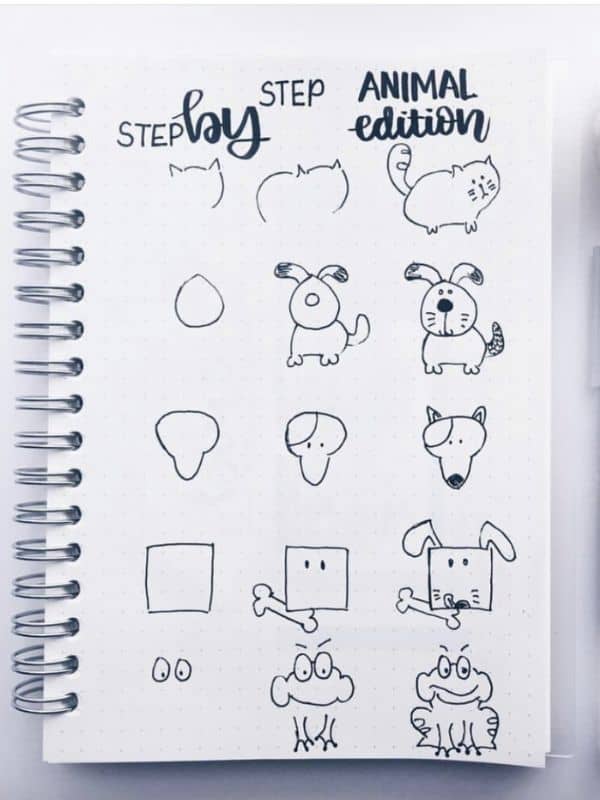 STEP by STEP
ANIMAL
edition